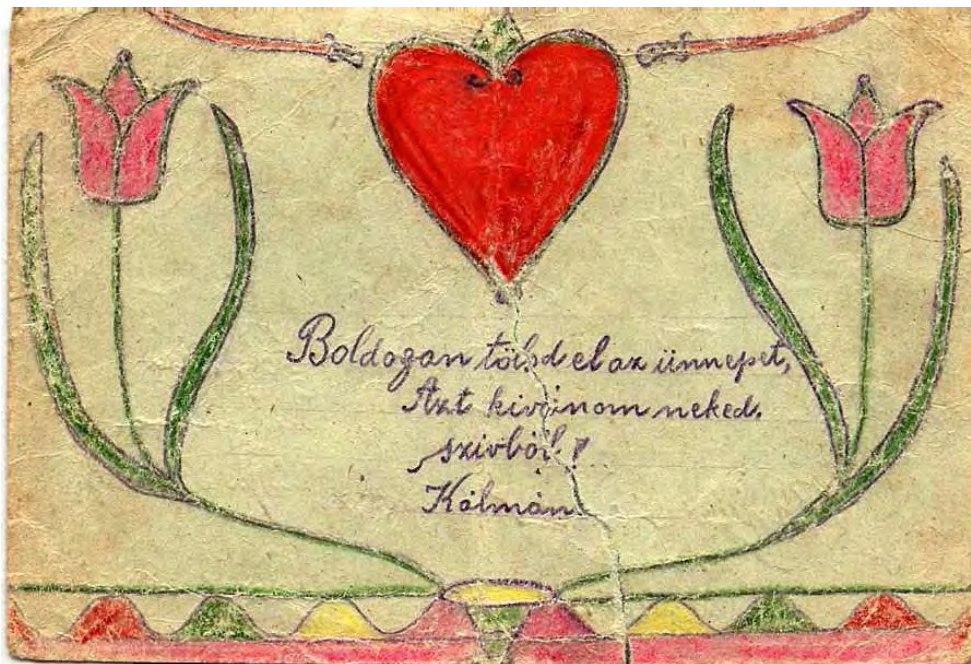 Boldogan töltsd el az ünnepet,
Azt kivánom neked
szivből!
Kálmán